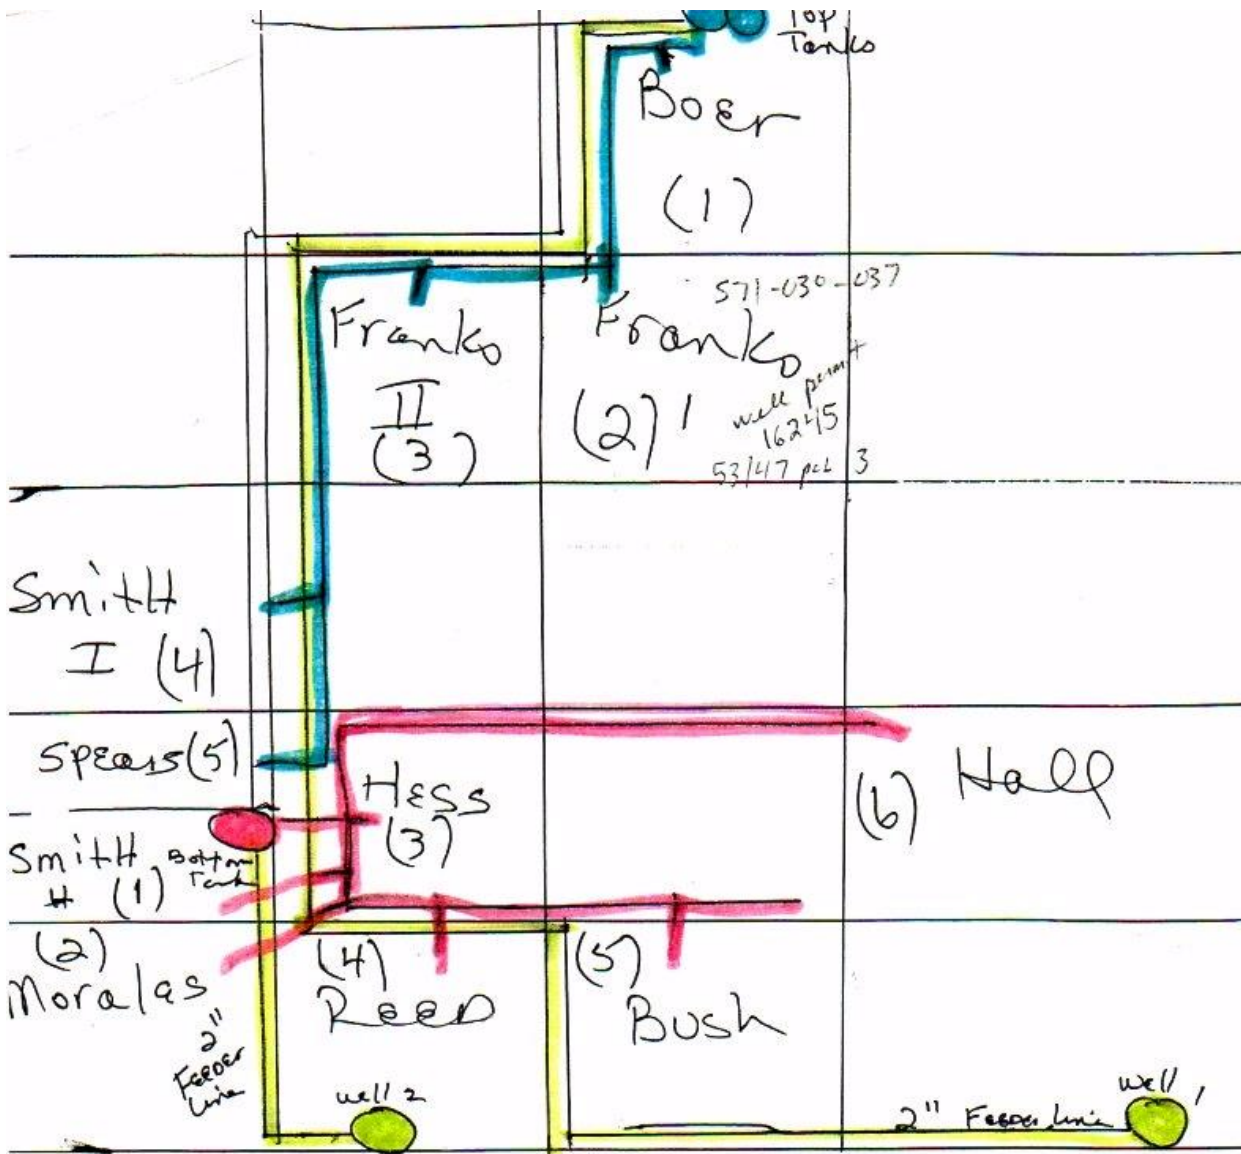 Top
Tanks
Boer
(1)
571-030-037
Franko
II
(3)
Franko
(2) 1
well permit
16245
53/47 pcl 3
Smith
I (4)
Spears (5)
Hess
(3)
(6) Hall
Smith
II (1)
Bottom
Tank
(2)
Moralas
(4)
Reed
(5)
Bush
2"
Feeder
Line
Well 2
2" Feeder Line
Well 1